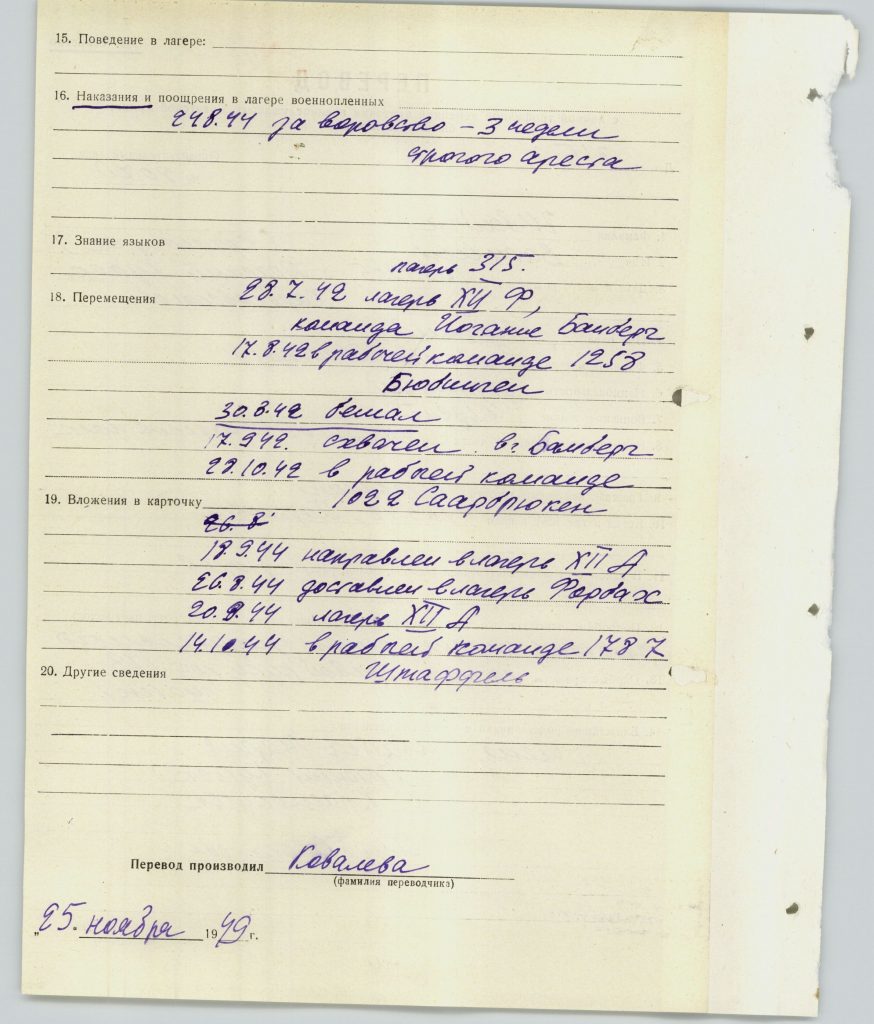 15. Поведение в лагере:
16. Наказания и поощрения в лагере военнопленных
24.8.44 за воровство – 3 недели
строгого ареста
17. Знание языков
лагерь 315.
18. Перемещения 28.7.42 лагерь XII Ф,
команда Иоганис Банберг
17.8.42 в рабочей команде 1258
30.8.42 бежал
17.9.42. схвачен в г. Бамберг
29.10.42 в рабочей команде
19. Вложения в карточку 1022 Саарбрюкен
26.8
18.9.44 направлен в лагерь XII А
26.8.44 доставлен в лагерь Форбах
20.9.44 лагерь XII А
14.10.44 в рабочей команде 1787
20. Другие сведения Штаффель
Перевод производил Ковалева
(фамилия переводчика)
„25. ноября 1949 г.